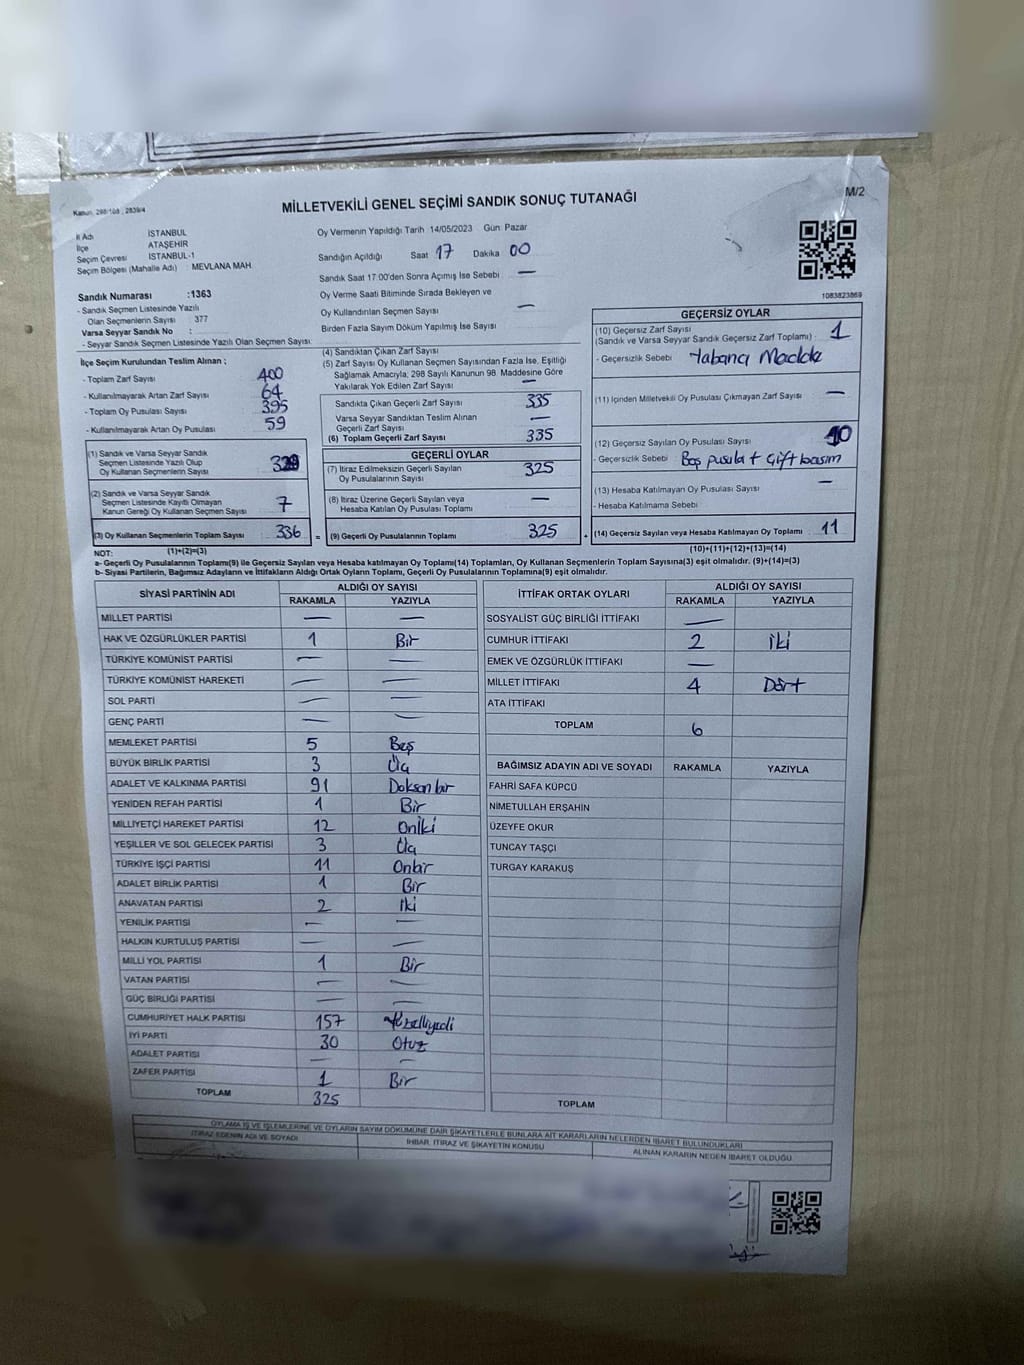 M/2
Kanun: 298/108 ; 2839/4
MİLLETVEKİLİ GENEL SEÇİMİ SANDIK SONUÇ TUTANAĞI
İl Adı İSTANBUL
İlçe ATAŞEHİR
Seçim Çevresi İSTANBUL-1
Seçim Bölgesi (Mahalle Adı) : MEVLANA MAH
Sandık Numarası :1363
- Sandık Seçmen Listesinde Yazılı
Olan Seçmenlerin Sayısı : 377
Varsa Seyyar Sandık No :
- Seyyar Sandık Seçmen Listesinde Yazılı Olan Seçmen Sayısı:
Oy Vermenin Yapıldığı Tarih 14/05/2023 Gün: Pazar
Sandığın Açıldığı Saat 17 Dakika 00
Sandık Saat 17:00'den Sonra Açılmış İse Sebebi —
Oy Verme Saati Bitiminde Sırada Bekleyen ve
Oy Kullandırılan Seçmen Sayısı —
Birden Fazla Sayım Döküm Yapılmış İse Sayısı
1083823869
İlçe Seçim Kurulundan Teslim Alınan ;
- Toplam Zarf Sayısı 400
- Kullanılmayarak Artan Zarf Sayısı 64
- Toplam Oy Pusulası Sayısı 395
- Kullanılmayarak Artan Oy Pusulası 59
(1) Sandık ve Varsa Seyyar Sandık
Seçmen Listesinde Yazılı Olup
Oy Kullanan Seçmenlerin Sayısı 329
(2) Sandık ve Varsa Seyyar Sandık
Seçmen Listesinde Kayıtlı Olmayan
Kanun Gereği Oy Kullanan Seçmen Sayısı 7
(3) Oy Kullanan Seçmenlerin Toplam Sayısı 336 =
(1)+(2)=(3)
(4) Sandıktan Çıkan Zarf Sayısı
(5) Zarf Sayısı Oy Kullanan Seçmen Sayısından Fazla İse, Eşitliği
Sağlamak Amacıyla, 298 Sayılı Kanunun 98. Maddesine Göre
Yakılarak Yok Edilen Zarf Sayısı —
Sandıkta Çıkan Geçerli Zarf Sayısı 335
Varsa Seyyar Sandıktan Teslim Alınan
Geçerli Zarf Sayısı —
(6) Toplam Geçerli Zarf Sayısı 335
GEÇERLİ OYLAR
(7) İtiraz Edilmeksizin Geçerli Sayılan
Oy Pusulalarının Sayısı 325
(8) İtiraz Üzerine Geçerli Sayılan veya
Hesaba Katılan Oy Pusulası Toplamı —
(9) Geçerli Oy Pusulalarının Toplamı 325 +
GEÇERSİZ OYLAR
(10) Geçersiz Zarf Sayısı 1
(Sandık ve Varsa Seyyar Sandık Geçersiz Zarf Toplamı)
- Geçersizlik Sebebi Yabancı Madde
(11) İçinden Milletvekili Oy Pusulası Çıkmayan Zarf Sayısı —
(12) Geçersiz Sayılan Oy Pusulası Sayısı 10
- Geçersizlik Sebebi Boş pusula + Çift basım
(13) Hesaba Katılmayan Oy Pusulası Sayısı —
- Hesaba Katılmama Sebebi
(14) Geçersiz Sayılan veya Hesaba Katılmayan Oy Toplamı 11
(10)+(11)+(12)+(13)=(14)
NOT:
a- Geçerli Oy Pusulalarının Toplamı(9) ile Geçersiz Sayılan veya Hesaba katılmayan Oy Toplamı(14) Toplamları, Oy Kullanan Seçmenlerin Toplam Sayısına(3) eşit olmalıdır. (9)+(14)=(3)
b- Siyasi Partilerin, Bağımsız Adayların ve İttifakların Aldığı Ortak Oyların Toplamı, Geçerli Oy Pusulalarının Toplamına(9) eşit olmalıdır.
SİYASİ PARTİNİN ADI ALDIĞI OY SAYISI
RAKAMLA YAZIYLA
MİLLET PARTİSİ — —
HAK VE ÖZGÜRLÜKLER PARTİSİ 1 Bir
TÜRKİYE KOMÜNİST PARTİSİ — —
TÜRKİYE KOMÜNİST HAREKETİ — —
SOL PARTİ — —
GENÇ PARTİ — —
MEMLEKET PARTİSİ 5 Beş
BÜYÜK BİRLİK PARTİSİ 3 Üç
ADALET VE KALKINMA PARTİSİ 91 Doksanbir
YENİDEN REFAH PARTİSİ 1 Bir
MİLLİYETÇİ HAREKET PARTİSİ 12 Oniki
YEŞİLLER VE SOL GELECEK PARTİSİ 3 Üç
TÜRKİYE İŞÇİ PARTİSİ 11 Onbir
ADALET BİRLİK PARTİSİ 1 Bir
ANAVATAN PARTİSİ 2 İki
YENİLİK PARTİSİ — —
HALKIN KURTULUŞ PARTİSİ — —
MİLLİ YOL PARTİSİ 1 Bir
VATAN PARTİSİ — —
GÜÇ BİRLİĞİ PARTİSİ — —
CUMHURİYET HALK PARTİSİ 157 Yüzelliyedi
İYİ PARTİ 30 Otuz
ADALET PARTİSİ — —
ZAFER PARTİSİ 1 Bir
TOPLAM 325
İTTİFAK ORTAK OYLARI ALDIĞI OY SAYISI
RAKAMLA YAZIYLA
SOSYALİST GÜÇ BİRLİĞİ İTTİFAKI —
CUMHUR İTTİFAKI 2 İki
EMEK VE ÖZGÜRLÜK İTTİFAKI —
MİLLET İTTİFAKI 4 Dört
ATA İTTİFAKI
TOPLAM 6
BAĞIMSIZ ADAYIN ADI VE SOYADI RAKAMLA YAZIYLA
FAHRİ SAFA KÜPCÜ
NİMETULLAH ERŞAHİN
ÜZEYFE OKUR
TUNCAY TAŞÇI
TURGAY KARAKUŞ
TOPLAM
OYLAMA İŞ VE İŞLEMLERİNE VE OYLARIN SAYIM DÖKÜMÜNE DAİR ŞİKAYETLERLE BUNLARA AİT KARARLARIN NELERDEN İBARET BULUNDUKLARI
İTİRAZ EDENİN ADI VE SOYADI İHBAR, İTİRAZ VE ŞİKAYETİN KONUSU ALINAN KARARIN NEDEN İBARET OLDUĞU